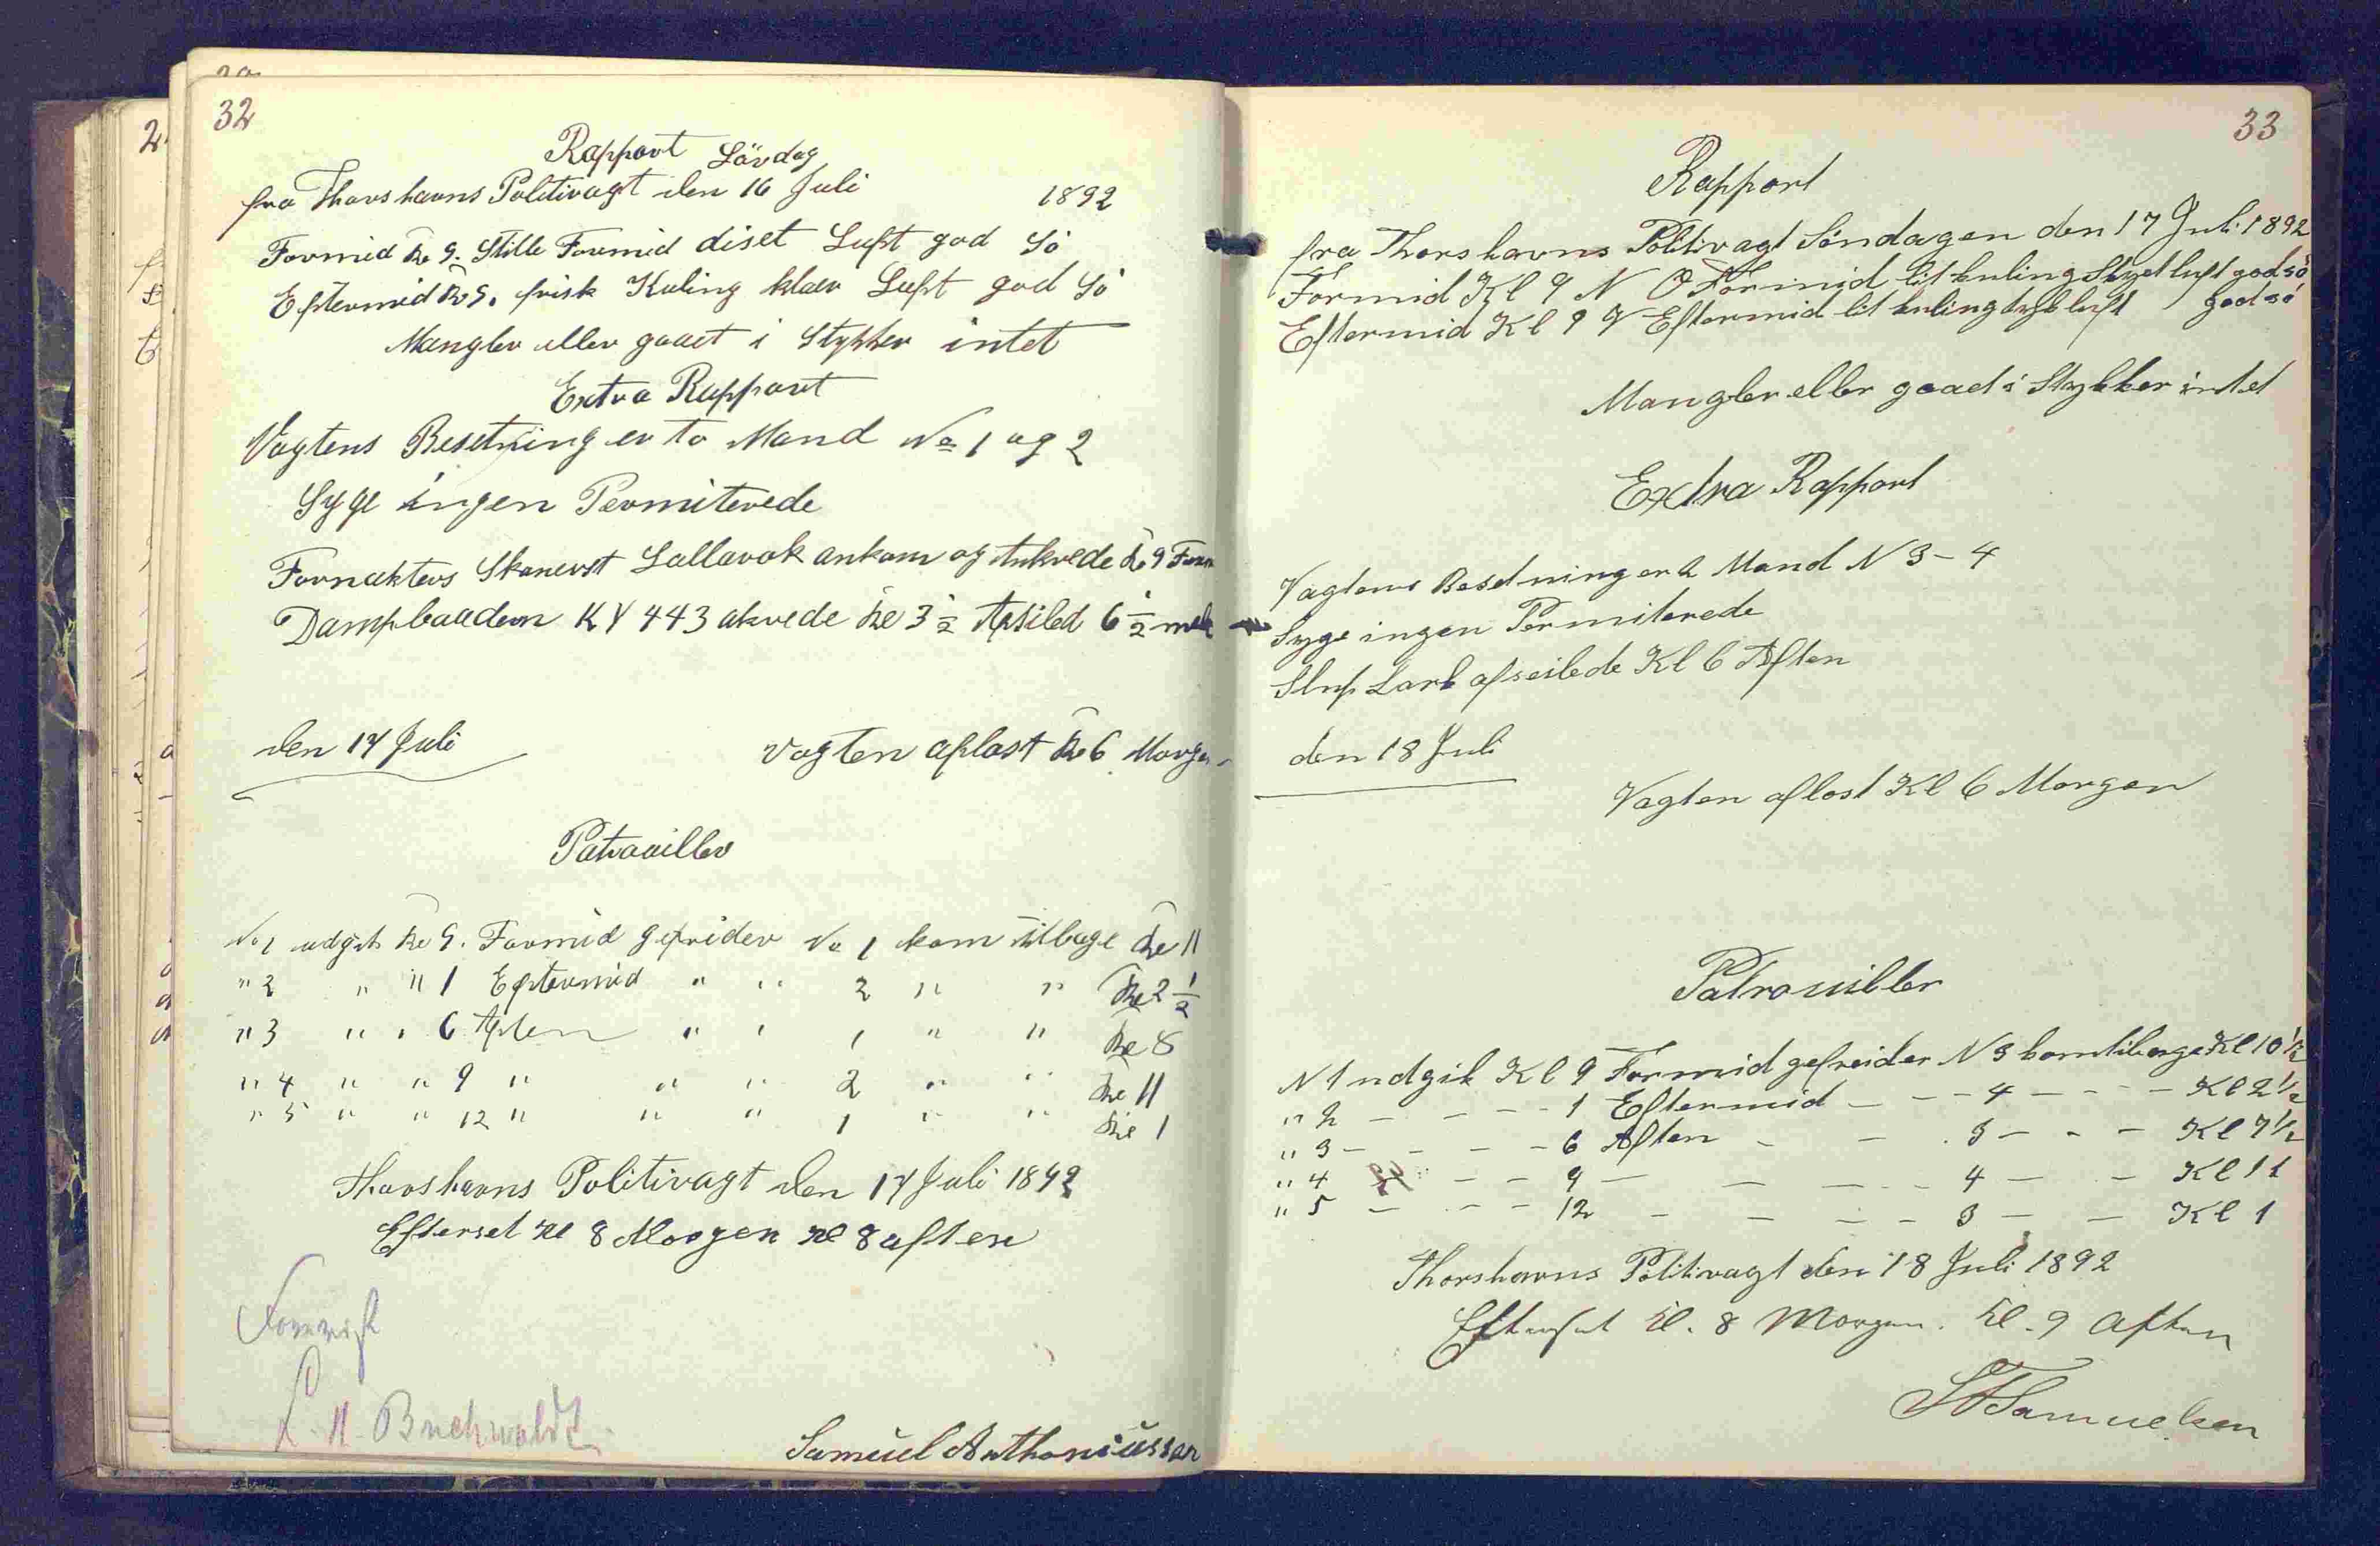 32
Rapport Lördag
fra Thorshavns Politivagt den 16 Juli 1892
Formid Kl 9. Stille Formid diset Luft god Sö
Eftermid Kl 9. frisk Kuling klar Luft god Sö
Mangler eller gaaet i Stykker intet
Extra Rapport
Vagtens Besetning er to Mand No 1 og 2
Syge ingen Permiterede
Skonerst ankom og Ankrede Kl 9 Form
Dampbaaden KY 443 akrede Kl 3 1/2 Afsiled 6 1/2
den 17 Juli
Vagten aflöst Kl 6 Morgen
Patrouiller
No 1 udgik Kl 9. Formid gefrider No 1 kom tilbage Kl 11
" 2 " " 1 Eftermid " " 2 " " Kl 2 1/2
" 3 " " 6 Aften " " 1 " " Kl 8
" 4 " " 9 " " " 2 " " Kl 11
" 5 " " 12 " " " 1 " " Kl 1
Thorshavns Politivagt den 17 Juli 1892
Efterset Kl 8 Morgen Kl 8 aften
Buchwaldt
Samuel Anthoniussen
33
Rapport
fra Thorshavns Politivagt Söndagen den 17 Juli 1892
Formid Kl 9 N O Formid lit kuling luft god sö
Eftermid Kl 9 V Eftermid lit kuling tyk luft god sö
Mangler eller gaad i Stykker intet
Extra Rapport
Vagtens Besetning er 2 Mand N 3 - 4
Syge ingen Permiterede
Slup Lark afseilede Kl 6 Aften
den 18 Juli
Vagten aflöst Kl 6 Morgen
Patrouiller
N 1 udgik Kl 9 Formid gefreider N 3 komtilbage Kl 10 1/2
" 2 - - - - 1 Eftermid - - - 4 - - - Kl 2 1/2
" 3 - - - - 6 Aften - - 3 - - - Kl 7 1/2
" 4 - - 9 - - - - 4 - - Kl 11
" 5 - - - 12 - - - - 3 - - Kl 1
Thorshavns Politivagt den 18 Juli 1892
Efterset Kl. 8 Morgen. Kl. 9 Aften
Samuelsen